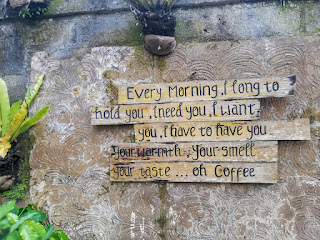 Every Morning, I long to
hold you, I need you, I want
you, I have to have you
your warmth, your smell
your taste ... oh Coffee